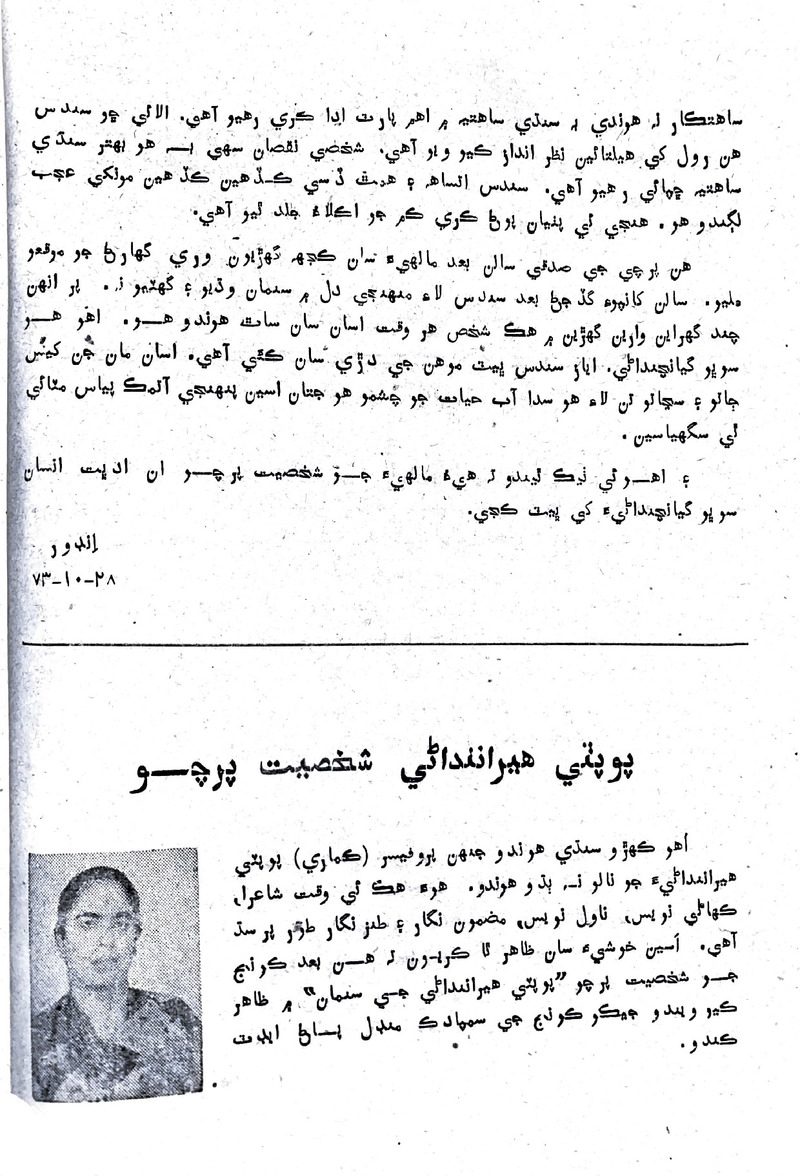 ساهتڪار نہ هوندي بہ سنڌي ساهتيہ ۾ اهم پارٽ ادا ڪري رهيو آهي. الائي ڇو سندس
هن رول کي هيلتائين نظر انداز ڪيو ويو آهي. شخصي نقصان سهي بہ هو بهتر سنڌي
ساهتيہ ڇپائي رهيو آهي. سندس اتساهہ ۽ همٿ ڏسي ڪڏهين ڪڏهين مونکي عجب
لڳندو هو. هنجي ئي پٺيان پوڻ ڪري ڪم جو اڪلاءُ جلد ٿيو آهي.
هن پرچي جي صدقي سالن بعد مالهيءَ سان ڪجهہ گهڙيون وري گهارڻ جو موقعو
مليو. سالن کانپوءِ گڏجڻ بعد سندس لاءِ منهنجي دل ۾ سنمان وڌيو ۽ گهٽيو نہ. پر انهن
چند گهراين وارين گهڙين ۾ هڪ شخص هر وقت اسان سان ساٿ هوندو هو. اهو هو
سوڀو گيانچنداڻي. اياز سندس ڀيٽ موهن جي دڙي سان ڪئي آهي. اسان مان جن کيس
ڄاتو ۽ سڃاتو تن لاءِ هو سدا آب حيات جو چشمو هو جتان اسين پنهنجي آتمڪ پياس مٽائي
ٿي سگهياسين.
۽ اهو ئي ٺيڪ ٿيندو تہ هيءُ مالهيءَ جو شخصيت پرچو ان اديب انسان
سوڀو گيانچنداڻيءَ کي ڀيٽ ڪجي.
اندور
٢٨-١٠-٧٣
پوپٽي هيراننداڻي شخصيت پرچو
اهو ڪهڙو سنڌي هوندو جنهن پروفيسر (ڪماري) پوپٽي
هيراننداڻيءَ جو نالو نہ ٻڌو هوندو. هوءَ هڪ ئي وقت شاعرا،
ڪهاڻي نويس، ناول نويس، مضمون نگار ۽ طنز نگار طور پرسڌ
آهي. اسين خوشيءَ سان ظاهر ٿا ڪريون تہ هن بعد ڪونج
جو شخصيت پرچو ”پوپٽي هيراننداڻي جي سنمان“ ۾ ظاهر
ڪيو ويندو جيڪو ڪونج جي سمپادڪ منڊل پاڻ ايڊٽ
ڪندو.